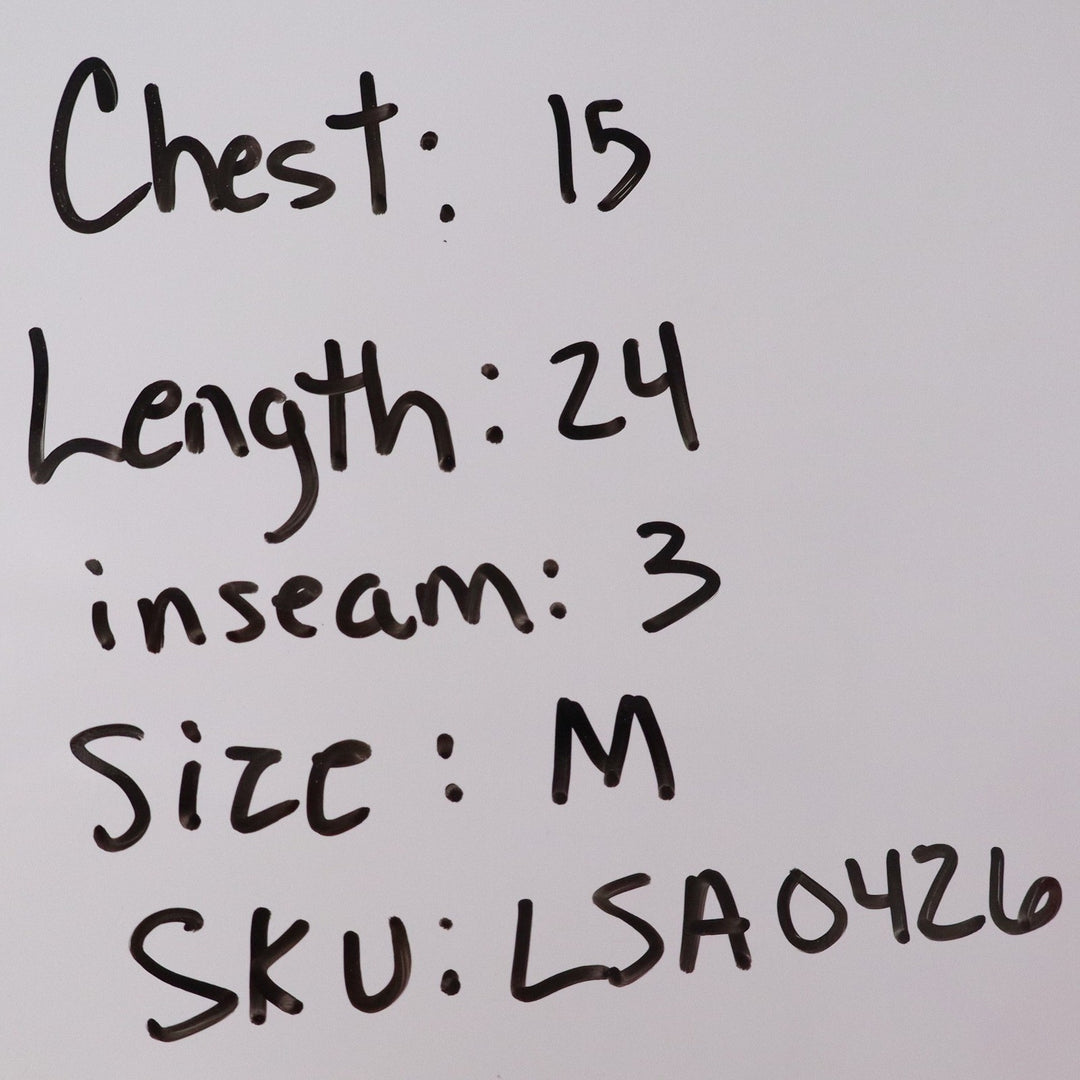 Chest: 15
Length: 24
inseam: 3
Size: M
SKU: LSA0426